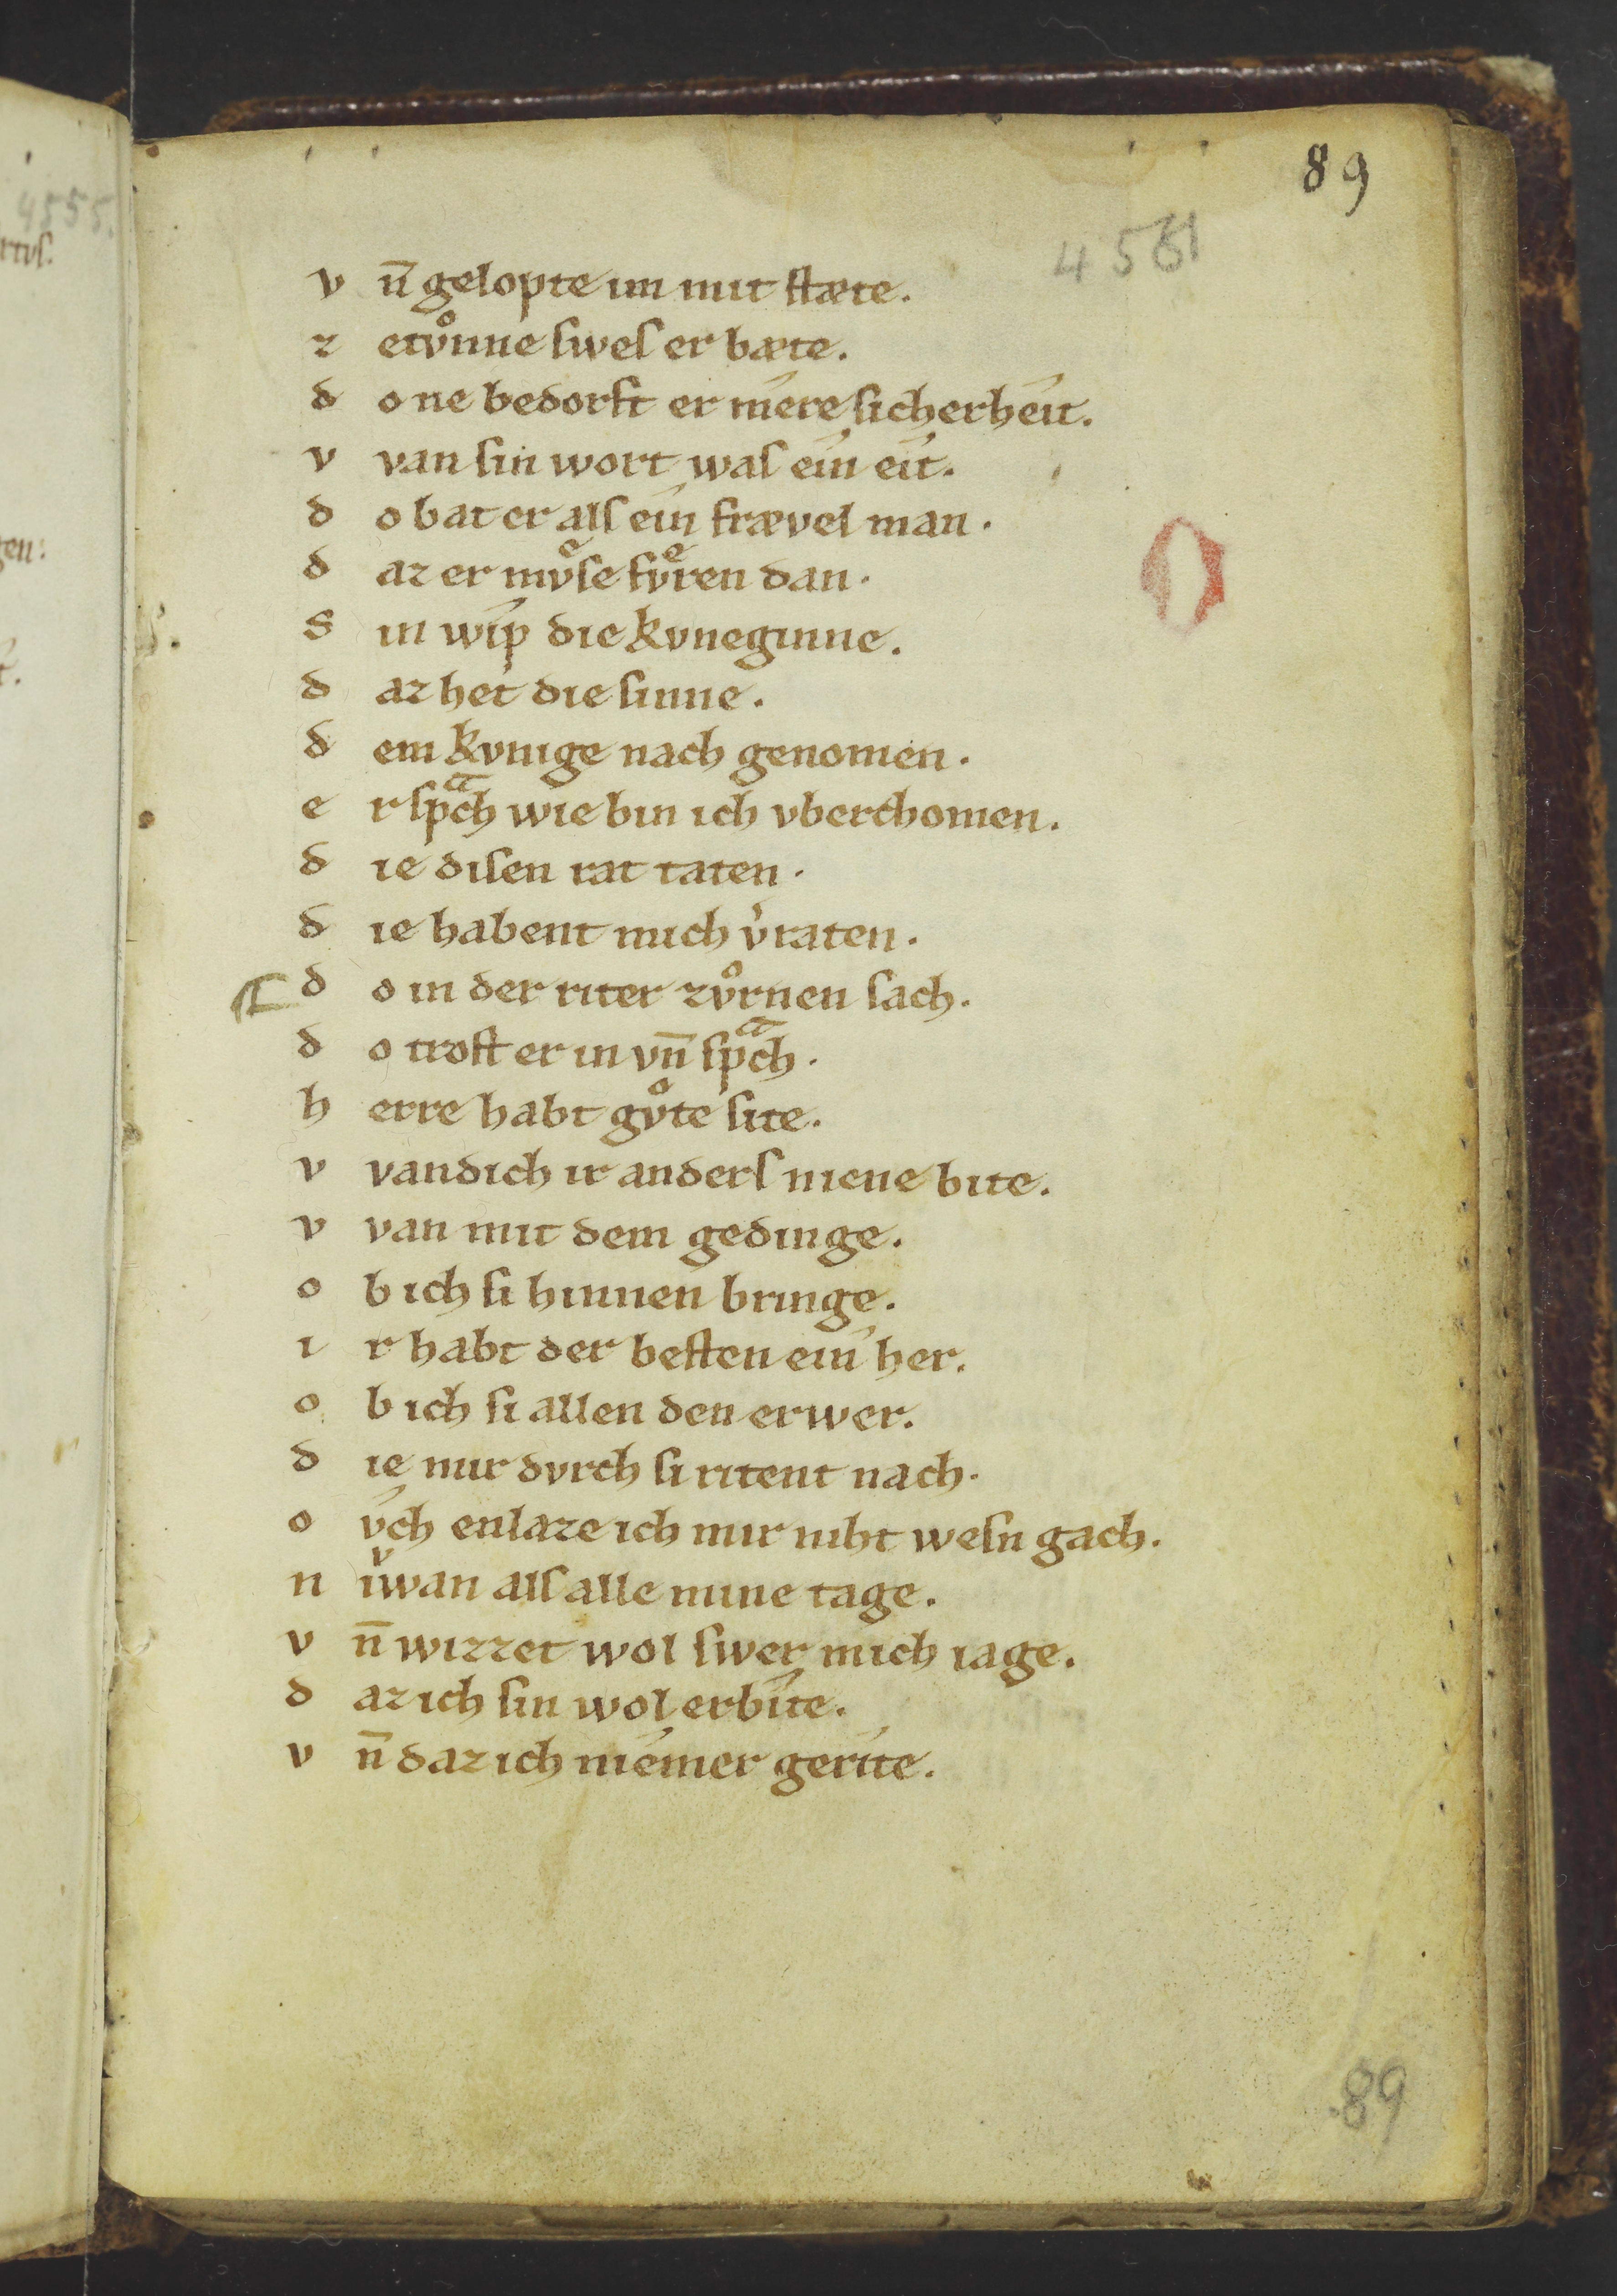 89
4561
v n̄ gelopte im mit stæte.
z etvͦnne swes er bæte.
d o ne bedorft er mere sicherheit.
v van sin wort was ein eit.
d o bat er als ein frævel man.
d az er mvͤse fvͤren dan.
S in wip die kvneginne.
d az het die sinne.
d em kvnige nach genomen.
e r spͣch wie bin ich vberchomen.
d ie disen rat taten.
d ie habent mich v͛raten.
d o in der riter zvͦrnen sach.
d o trost er in vn̄ spͣch.
h erre habt gvͦte site.
v van dich ir anders niene bite.
v van mit dem gedinge.
o b ich si hinnen bringe.
i r habt der besten ein her.
o b ich si allen den erwer.
d ie mir dvrch si ritent nach.
o vch enlaze ich mir niht wesn gach.
n iͮwan als alle mine tage.
v n̄ wizzet wol swer mich iage.
d az ich sin wol erbite.
v n̄ daz ich niemer gerite.
89